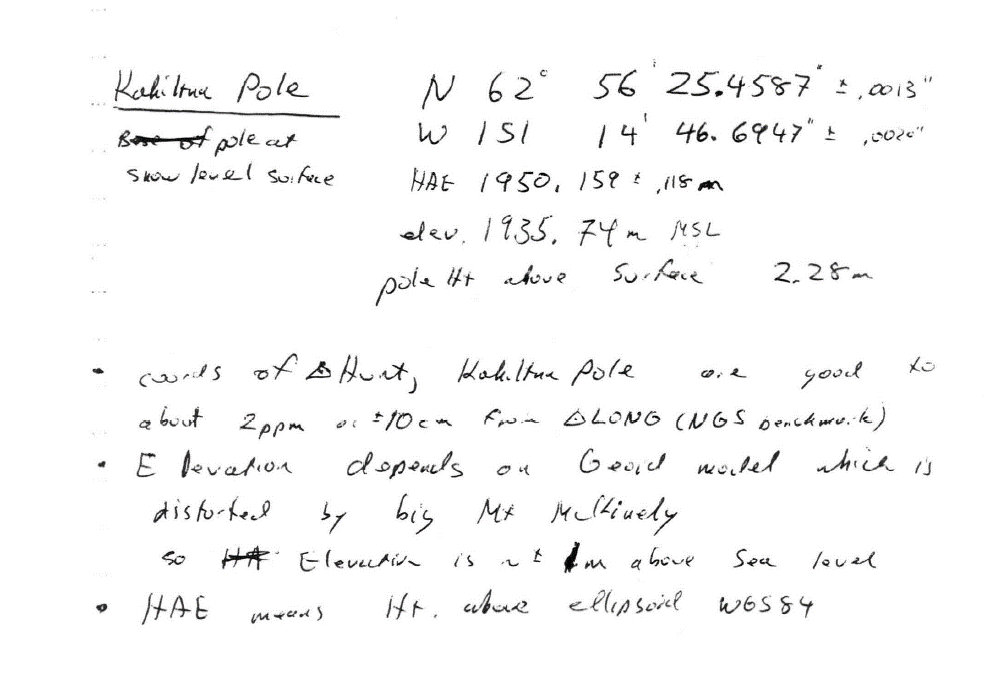 Kahiltna Pole N 62° 56' 25.4587" ± .0013"
Base of pole at W 151 14' 46.6947" ± .0020"
snow level surface HAE 1950.159 ± .118m
elev. 1935.74m MSL
pole Ht above Surface 2.28m
• coords of △ Hunt, Kahiltna Pole are good to
about 2ppm or ±10cm from △LONG (NGS benchmark)
• Elevation depends on Geoid model which is
distorted by big Mt McKinely
so HA Elevation is ~ ± 1m above Sea level
• HAE means Ht. above ellipsoid WGS84